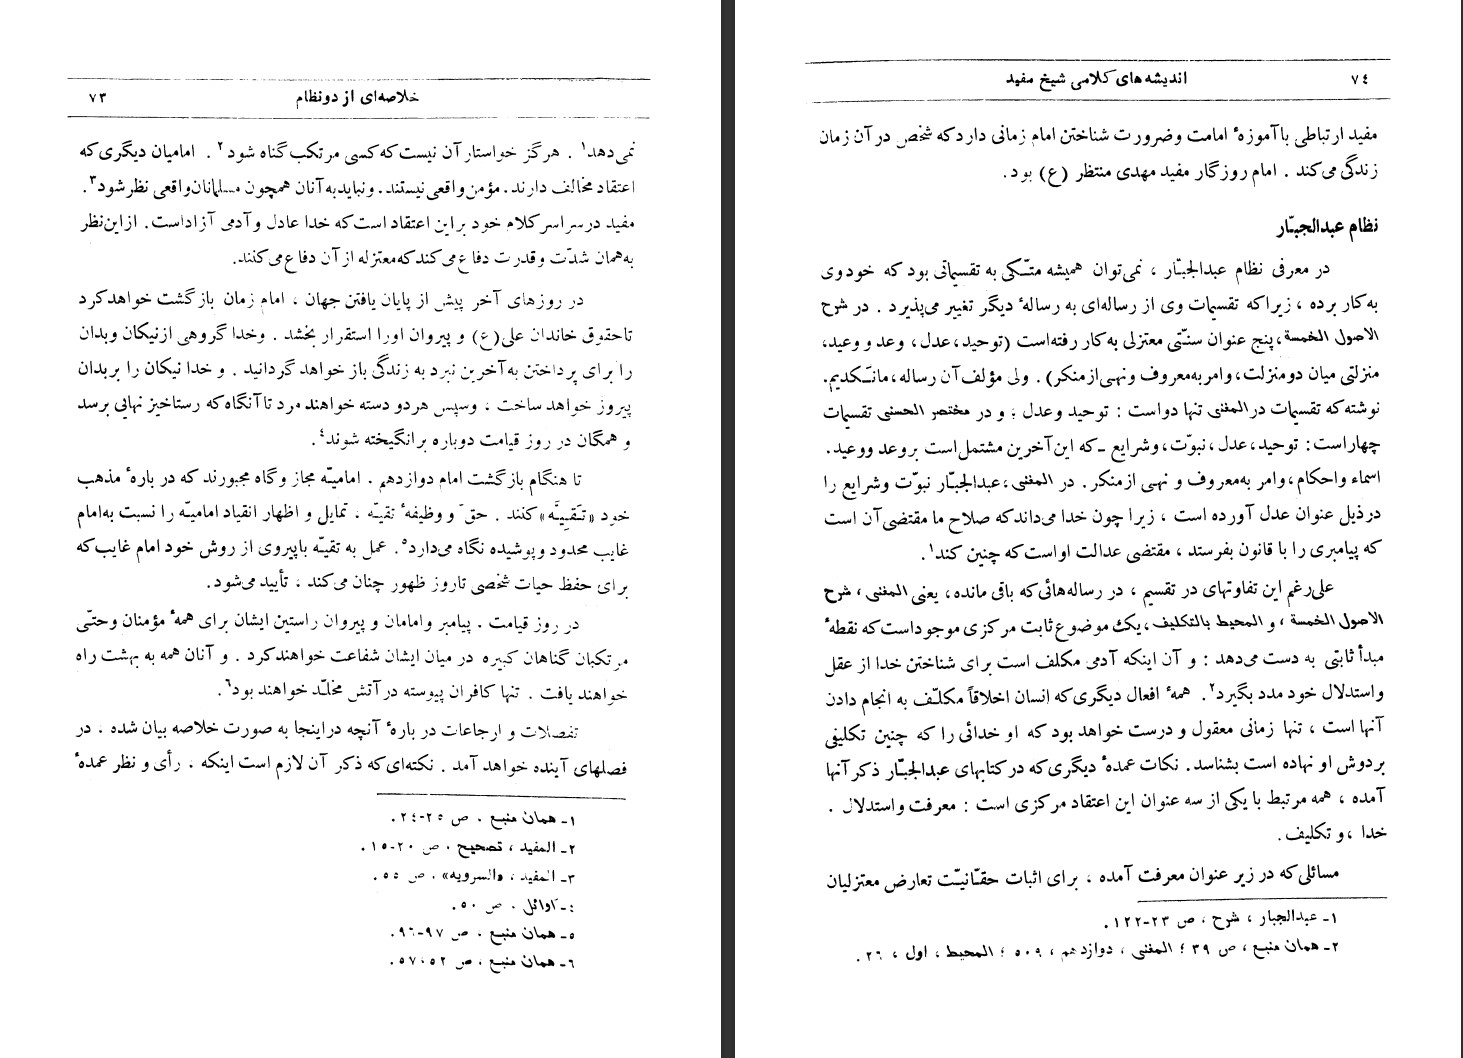 خلاصه‌ای از دو نظام ۷۳
نمی‌دهد۱ . هرگز خواستار آن نیست که کسی مرتکب گناه شود۲ . امامیان دیگری که
اعتقاد مخالف دارند . مؤمن واقعی نیستند . و نباید به آنان همچون مسلمانان واقعی نظر شود۳.
مفید در سراسر کلام خود بر این اعتقاد است که خدا عادل و آدمی آزاد است . از این نظر
به همان شدّت و قدرت دفاع می‌کند که معتزله از آن دفاع می‌کنند.
در روزهای آخر پیش از پایان یافتن جهان ، امام زمان بازگشت خواهد کرد
تا حقوق خاندان علی (ع) و پیروان او را استقرار بخشد . و خدا گروهی از نیکان و بدان
را برای پرداختن به آخرین نبرد به زندگی باز خواهد گردانید . و خدا نیکان را بر بدان
پیروز خواهد ساخت ، و سپس هر دو دسته خواهند مرد تا آنگاه که رستاخیز نهایی برسد
و همگان در روز قیامت دوباره برانگیخته شوند۴.
تا هنگام بازگشت امام دوازدهم . امامیّه مجاز و گاه مجبورند که در بارهٔ مذهب
خود «تَقیِیَّه» کنند . حق و وظیفهٔ تقیّه ، تمایل و اظهار انقیاد امامیّه را نسبت به امام
غایب محدود و پوشیده نگاه می‌دارد۵. عمل به تقیّه با پیروی از روش خود امام غایب که
برای حفظ حیات شخصی تا روز ظهور چنان می‌کند ، تأیید می‌شود.
در روز قیامت . پیامبر و امامان و پیروان راستین ایشان برای همهٔ مؤمنان و حتّی
مرتکبان گناهان کبیره در میان ایشان شفاعت خواهند کرد . و آنان همه به بهشت راه
خواهند یافت . تنها کافران پیوسته در آتش مخلّد خواهند بود۶.
تفصلات و ارجاعات در بارهٔ آنچه در اینجا به صورت خلاصه بیان شده ، در
فصلهای آینده خواهد آمد . نکته‌ای که ذکر آن لازم است اینکه ، رأی و نظر عمدهٔ
۱ـ همان منبع ، ص ۲۵-۲۴.
۲ـ المفید ، تصحیح ، ص ۲۰-۱۵.
۳ـ المفید ، «السرویه» ، ص ۵۵.
۴ـ اوائل ، ص ۵۰.
۵ـ همان منبع ، ص ۹۷-۹۶.
۶ـ همان منبع ، ص ۵۲ ، ۵۷.
۷۴ اندیشه‌های کلامی شیخ مفید
مفید ارتباطی با آموزهٔ امامت و ضرورت شناختن امام زمانی دارد که شخص در آن زمان
زندگی می‌کند . امام روزگار مفید مهدی منتظر (ع) بود.
نظام عبدالجبّار
در معرفی نظام عبدالجبّار ، نمی‌توان همیشه متّکی به تقسیماتی بود که خود وی
به کار برده ، زیرا که تقسیمات وی از رساله‌ای به رسالهٔ دیگر تغییر می‌پذیرد . در شرح
الاصول الخمسة ، پنج عنوان سنّتی معتزلی به کار رفته است (توحید ، عدل ، وعد و وعید،
منزلتی میان دو منزلت، و امر به معروف و نهی از منکر) . ولی مؤلف آن رساله ، مانکدیم.
نوشته که تقسیمات در المغنی تنها دو است : توحید و عدل ؛ و در مختصر الحسنی تقسیمات
چهار است : توحید ، عدل ، نبوّت ، و شرایع ـ که این آخرین مشتمل است بر وعد و وعید.
اسماء و احکام ، و امر به معروف و نهی از منکر . در المغنی ، عبدالجبّار نبوّت و شرایع را
در ذیل عنوان عدل آورده است ، زیرا چون خدا می‌داند که صلاح ما مقتضی آن است
که پیامبری را با قانون بفرستد ، مقتضی عدالت او است که چنین کند۱.
علی‌رغم این تفاوتهای در تقسیم ، در رساله‌هائی که باقی مانده ، یعنی المغنی ، شرح
الاصول الخمسة ، و المحیط بالتکلیف ، یک موضوع ثابت مرکزی موجود است که نقطهٔ
مبدأ ثابتی به دست می‌دهد : و آن اینکه آدمی مکلف است برای شناختن خدا از عقل
و استدلال خود مدد بگیرد۲. همهٔ افعال دیگری که انسان اخلاقاً مکلّف به انجام دادن
آنها است ، تنها زمانی معقول و درست خواهد بود که او خدائی را که چنین تکلیفی
بر دوش او نهاده است بشناسد . نکات عمدهٔ دیگری که در کتابهای عبدالجبّار ذکر آنها
آمده ، همه مرتبط با یکی از سه عنوان این اعتقاد مرکزی است : معرفت و استدلال .
خدا ، و تکلیف .
مسائلی که در زیر عنوان معرفت آمده ، برای اثبات حقّانیّت تعارض معتزلیان
۱ـ عبدالجبار ، شرح ، ص ۲۳-۱۲۲.
۲ـ همان منبع ، ص ۳۹ ؛ المغنی ، دوازدهم ، ۵۰۹ ؛ المحیط ، اول ، ۲۶.